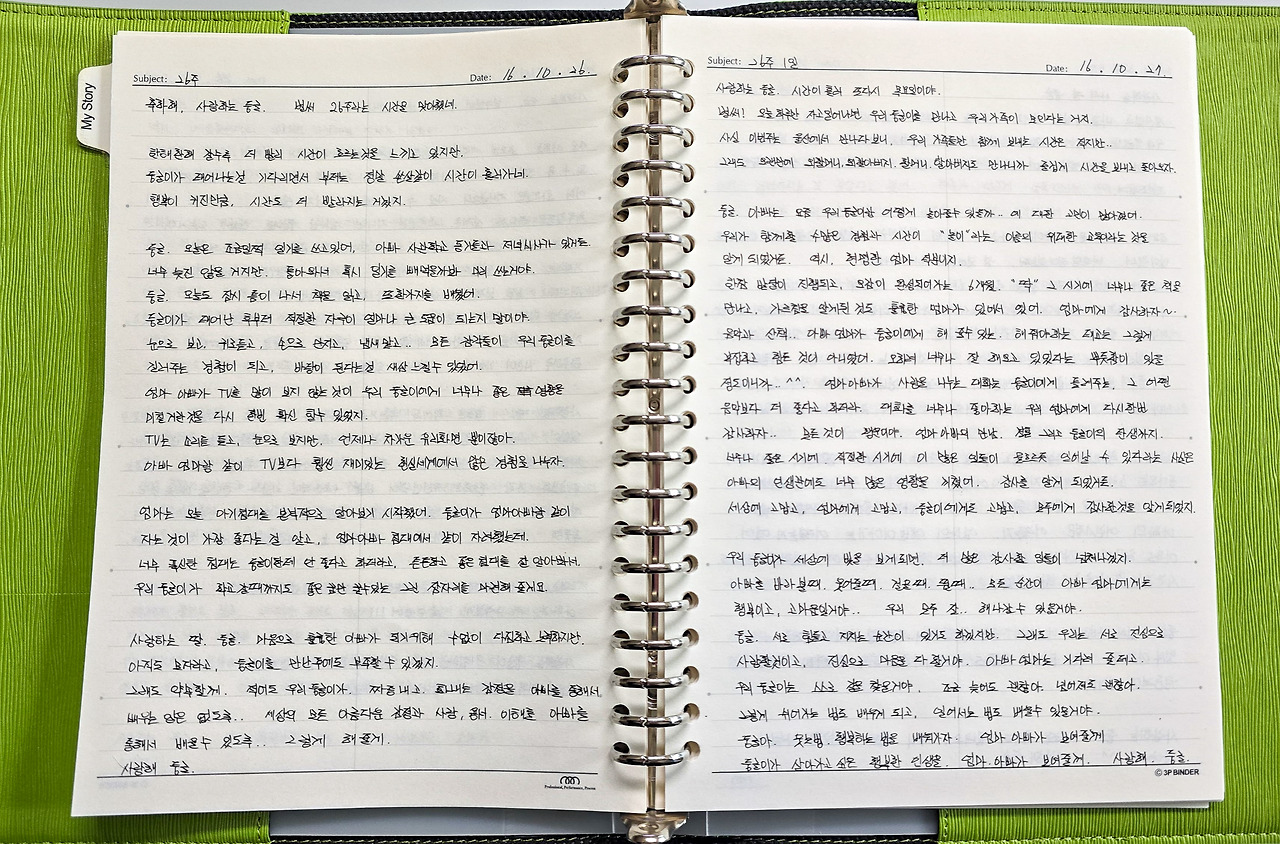 My Story
Subject: 26주 Date: 16. 10. 26.
축하해, 사랑하는 둥글. 벌써 26주라는 시간을 맞이했네.
한해 한해 갈수록 더 빨리 시간이 흐르는 것을 느끼고 있지만,
둥글이가 태어나는걸 기다리면서 부터는 정말 쏜살같이 시간이 흘러가네.
행복이 커진만큼, 시간도 더 빨라지는 거겠지.
둥글. 오늘은 조금일찍 일기를 쓰고있어, 아빠 사관학교 동기들과 저녁식사가 있거든.
너무 늦진 않을 거지만, 돌아와서 혹시 일기를 빼먹을까봐 미리 쓰는거야.
둥글. 오늘도 잠시 틈이 나서 책을 읽고, 또 한가지를 배웠어.
둥글이가 태어난 후부터 적절한 자극이 얼마나 큰 도움이 되는지 말이야.
눈으로 보고, 귀로듣고, 손으로 만지고, 냄새맡고.. 모든 감각들이 우리 둥글이를
길러주는 경험이 되고, 바탕이 된다는걸 새삼 느낄수 있었어.
엄마 아빠가 TV를 많이 보지 않는 것이 우리 둥글이에게 너무나 좋은 영향을
미칠거란것을 다시 한번 확신 할수 있었지.
TV는 소리를 듣고, 눈으로 보지만, 언제나 차가운 유리화면 뿐이잖아.
아빠 엄마랑 같이 TV보다 훨씬 재미있는 현실세계에서 많은 경험을 나누자.
엄마는 오늘 아기침대를 본격적으로 알아보기 시작했어. 둥글이가 엄마아빠랑 같이
자는 것이 가장 좋다는 걸 알고, 엄마아빠 침대에서 같이 자려했는데.
너무 푹신한 침대는 둥글이한테 안 좋다고 하더라고, 튼튼하고 좋은 침대를 잘 알아봐서.
우리 둥글이가 학교갈때까지도 좋은 꿈만 꿀수있는 그런 잠자리를 마련해 줄게요.
사랑하는 딸. 둥글. 마음으로 훌륭한 아빠가 되기위해 수없이 다짐하고 노력하지만,
아직도 모자라고, 둥글이를 만난 후에도 부족할 수 있겠지.
그래도 약속할게. 적어도 우리 둥글이가. 짜증내고. 화내는 감정을 아빠를 통해서
배우는 일은 없도록.. 세상의 모든 아름다운 감정과 사랑, 용서, 이해를 아빠를
통해서 배울수 있도록.. 그렇게 해줄게.
사랑해 둥글.
Professional, Performance, Process
Subject: 26주 1일 Date: 16. 10. 27.
사랑하는 둥글. 시간이 흘러 또다시 목요일이야.
벌써! 오늘 하루만 자고일어나면 우리 둥글이를 만나고 우리가족이 모인다는 거지.
사실 이번주는 울산에서 만나다 보니, 우리 가족들만 함께 보내는 시간은 적지만..
그래도 오랜만에 외할머니, 외할아버지, 할머니, 할아버지도 만나니까 즐겁게 시간을 보내고 돌아오자.
둥글. 아빠는 요즘 우리 둥글이랑 어떻게 놀아줄수 있을까.. 에 대한 고민이 많아졌어.
우리가 함께할 수많은 경험과 시간이 "놀이"라는 이름의 위대한 교육이라는 것을
알게 되었거든. 역시, 현명한 엄마 덕분이지.
한참 발달이 진행되고, 오감이 완성되어가는 6개월. "딱" 그 시기에 너무나 좋은 책을
만나고, 가르침을 알게된 것도 훌륭한 엄마가 있어서 였어. 엄마에게 감사하자~
음악과 산책.. 아빠 엄마가 둥글이에게 해 줄수 있는. 해줘야하는 태교는 그렇게
복잡하고 힘든 것이 아니었어. 오히려 너무나 잘 해오고 있었다는 뿌듯함이 있을
정도니까.. ^^. 엄마아빠가 사랑을 나누는 대화는 둥글이에게 들려주는, 그 어떤
음악보다 더 좋다고 하더라. 대화를 너무나 좋아하는 우리 엄마에게 다시한번
감사하자.. 모든 것이 행운이야. 엄마 아빠의 만남. 결혼 그리고 둥글이의 탄생까지.
너무나 좋은 시기에, 적절한 시기에 이 많은 일들이 물흐르듯 일어날 수 있다라는 사실은
아빠의 인생관에도 너무 많은 영향을 끼쳤어. 감사를 알게 되었거든.
세상에 고맙고, 엄마에게 고맙고, 둥글이에게도 고맙고, 모두에게 감사한것을 알게되었지.
우리 둥글이가 세상에 빛을 보게되면, 더 많은 감사할 일들이 넘쳐나겠지.
아빠를 바라볼때. 웃어줄때. 걸을때. 뛸때.. 모든 순간이 아빠 엄마에게는
행복이고, 고마움일거야.. 우리 모두 잘.. 해나갈수 있을거야.
둥글. 서로 힘들고 지치는 순간이 있기도 하겠지만. 그래도 우리는 서로 진심으로
사랑할것이고, 진심으로 마음을 다 할거야. 아빠 엄마는 기다려 줄테고.
우리 둥글이는 스스로 길을 찾을거야. 조금 늦어도 괜찮아. 넘어져도 괜찮아.
그렇게 쉬어가는 법도 배우게 되고, 일어서는 법도 배울수 있을거야.
둥글아. 웃는법. 행복하는 법을 배워가자. 엄마 아빠가 보여줄게
둥글이가 살아가고 싶은 행복한 인생을. 엄마. 아빠가 보여줄게. 사랑해. 둥글.
© 3P BINDER